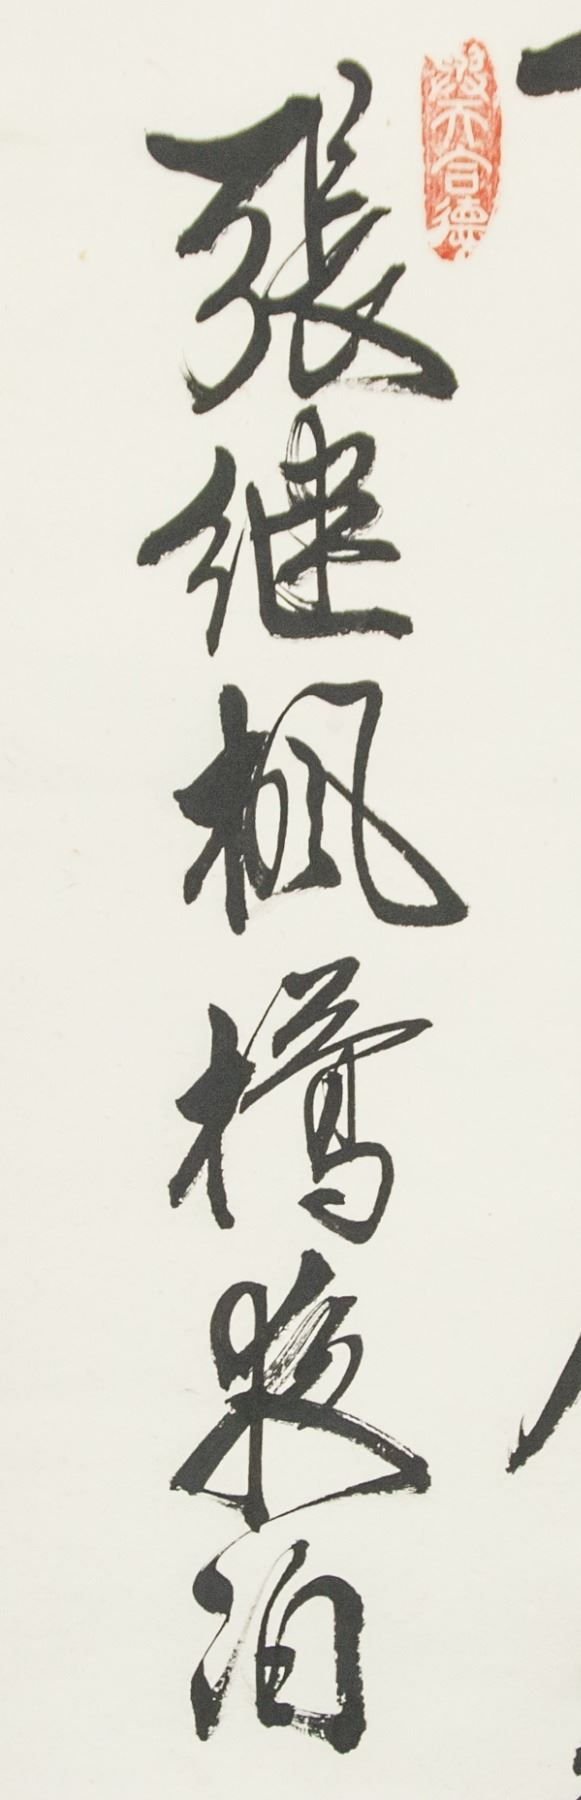 張继枫橋夜泊